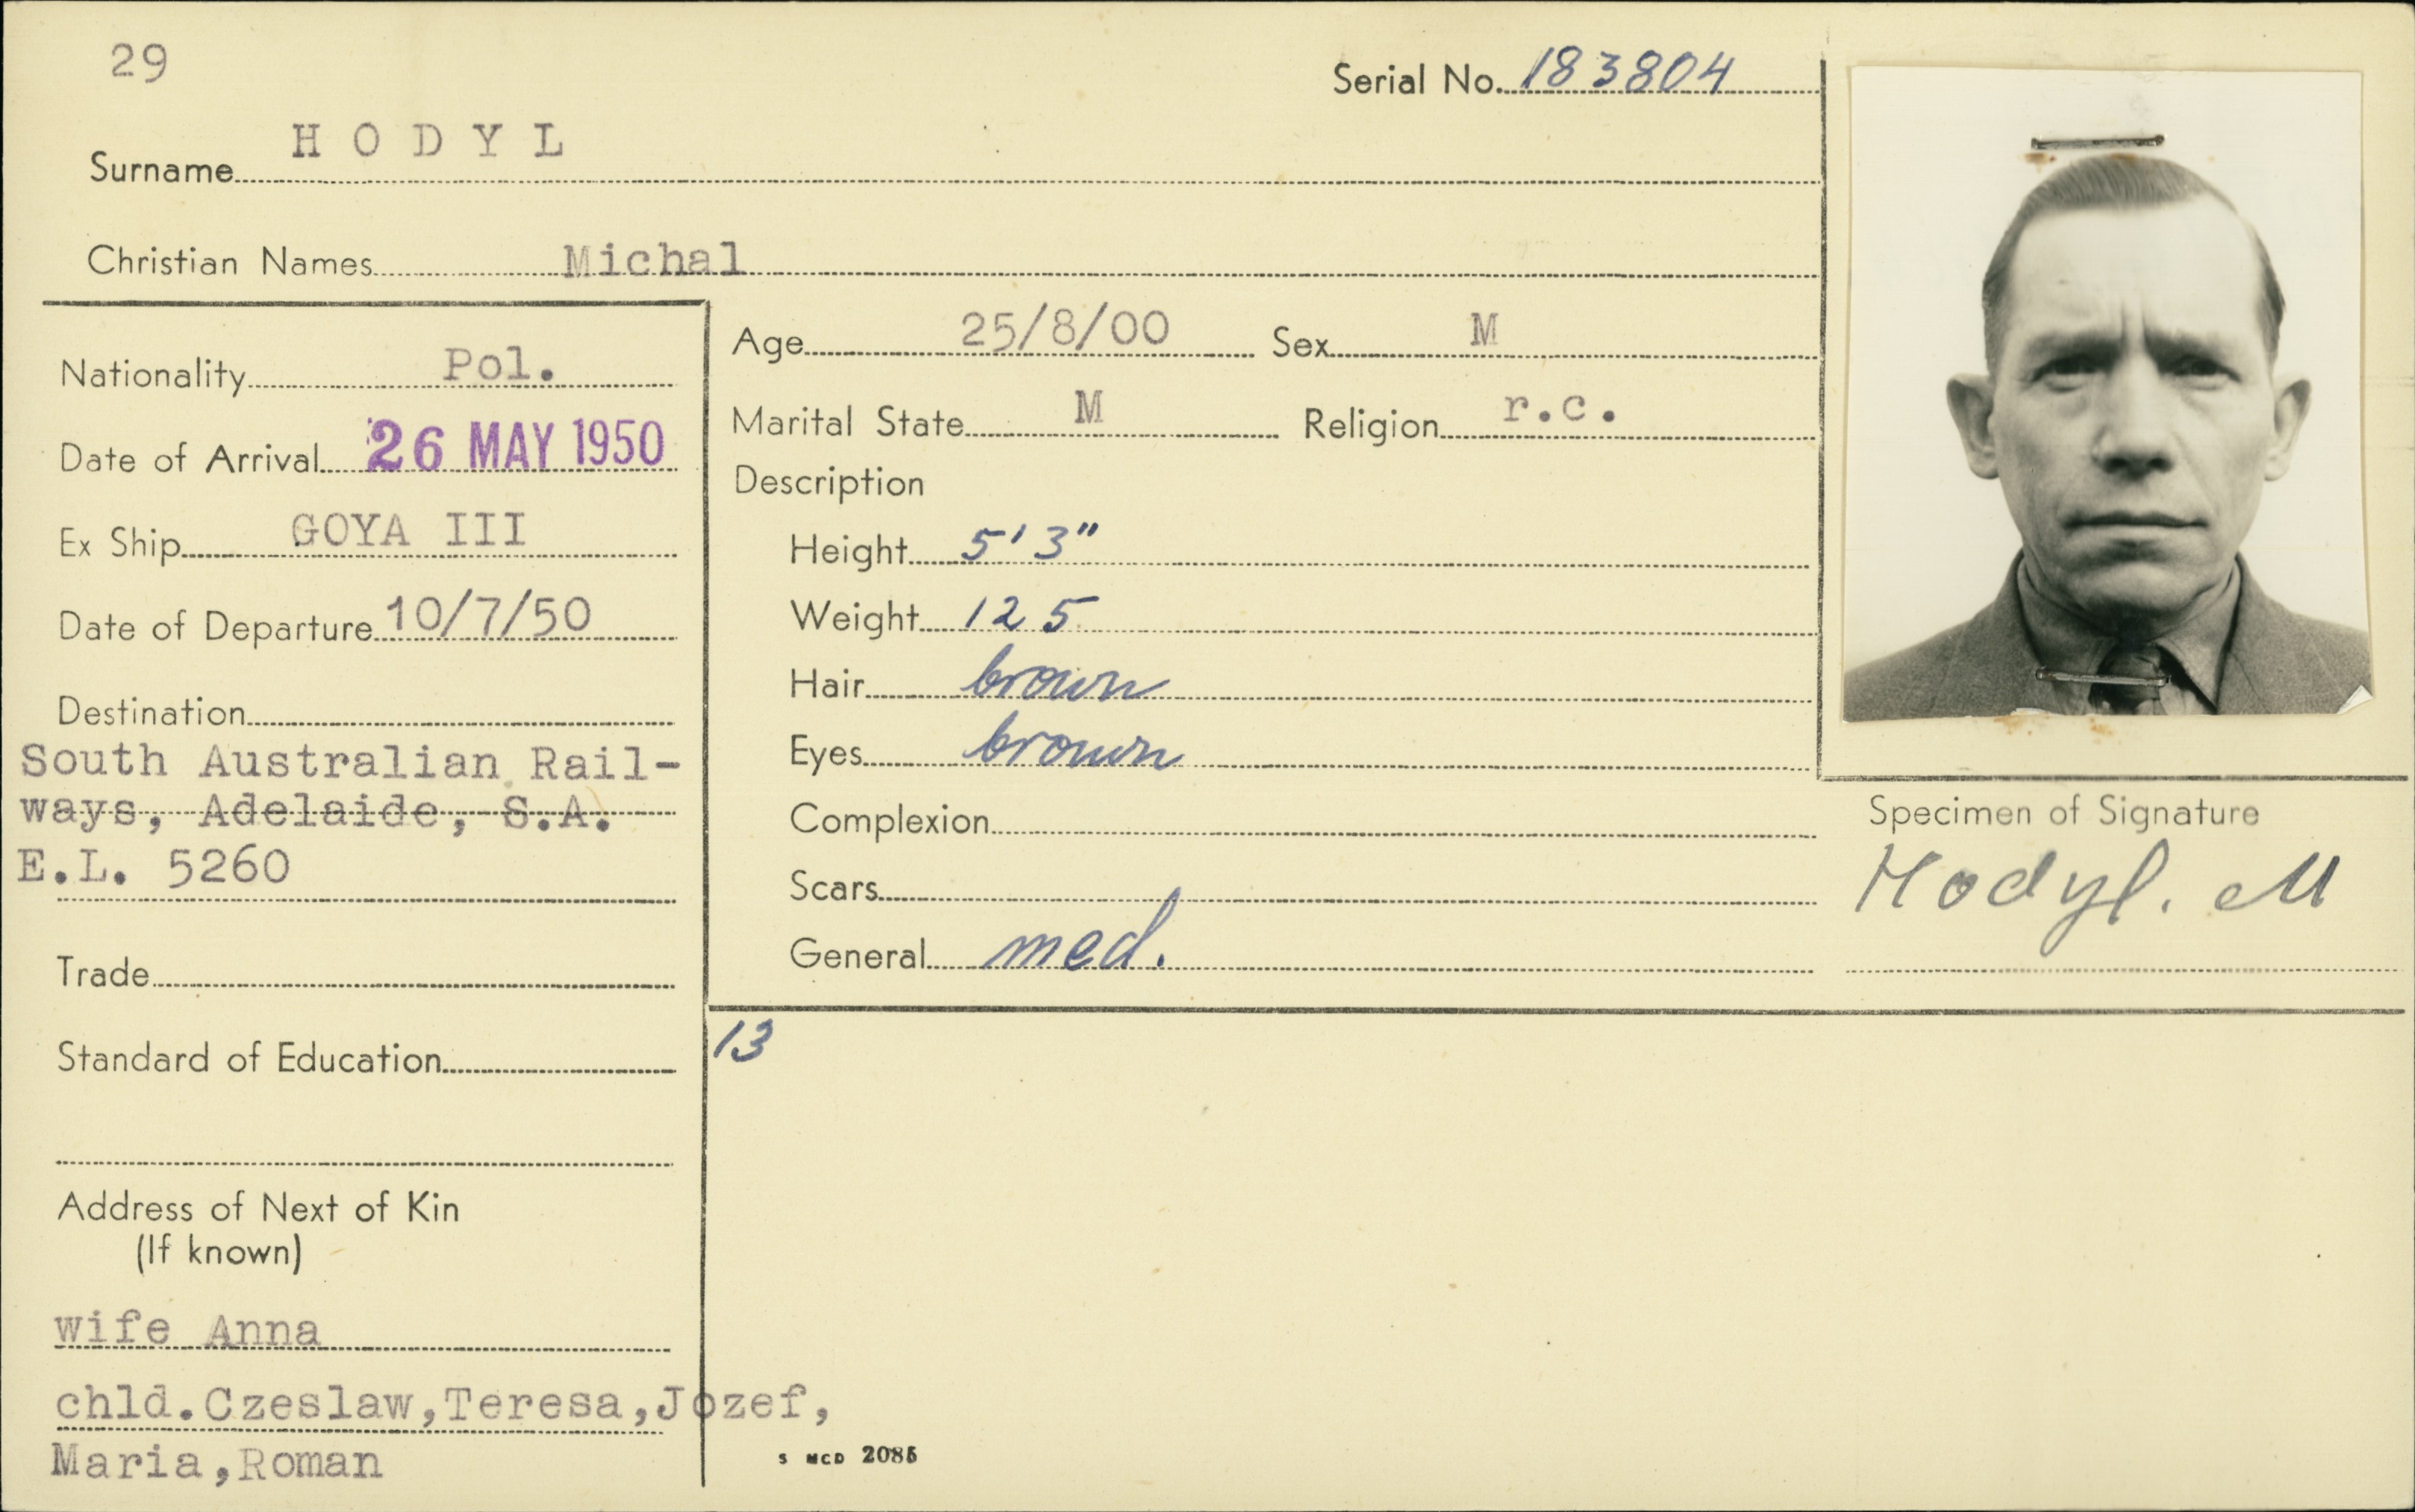 29
Serial No. 183804
Surname H O D Y L
Christian Names Michal
Nationality Pol.
Date of Arrival 26 MAY 1950
Ex Ship GOYA III
Date of Departure 10/7/50
Destination
South Australian Rail-
ways, Adelaide, S.A.
E.L. 5260
Trade
Standard of Education
Address of Next of Kin
(If known)
wife Anna
chld.Czeslaw,Teresa,Jozef,
Maria,Roman
Age 25/8/00 Sex M
Marital State M Religion r.c.
Description
Height 5'3"
Weight 125
Hair brown
Eyes brown
Complexion
Scars
General med.
13
S MCD 2085
Specimen of Signature
Hodyl. M